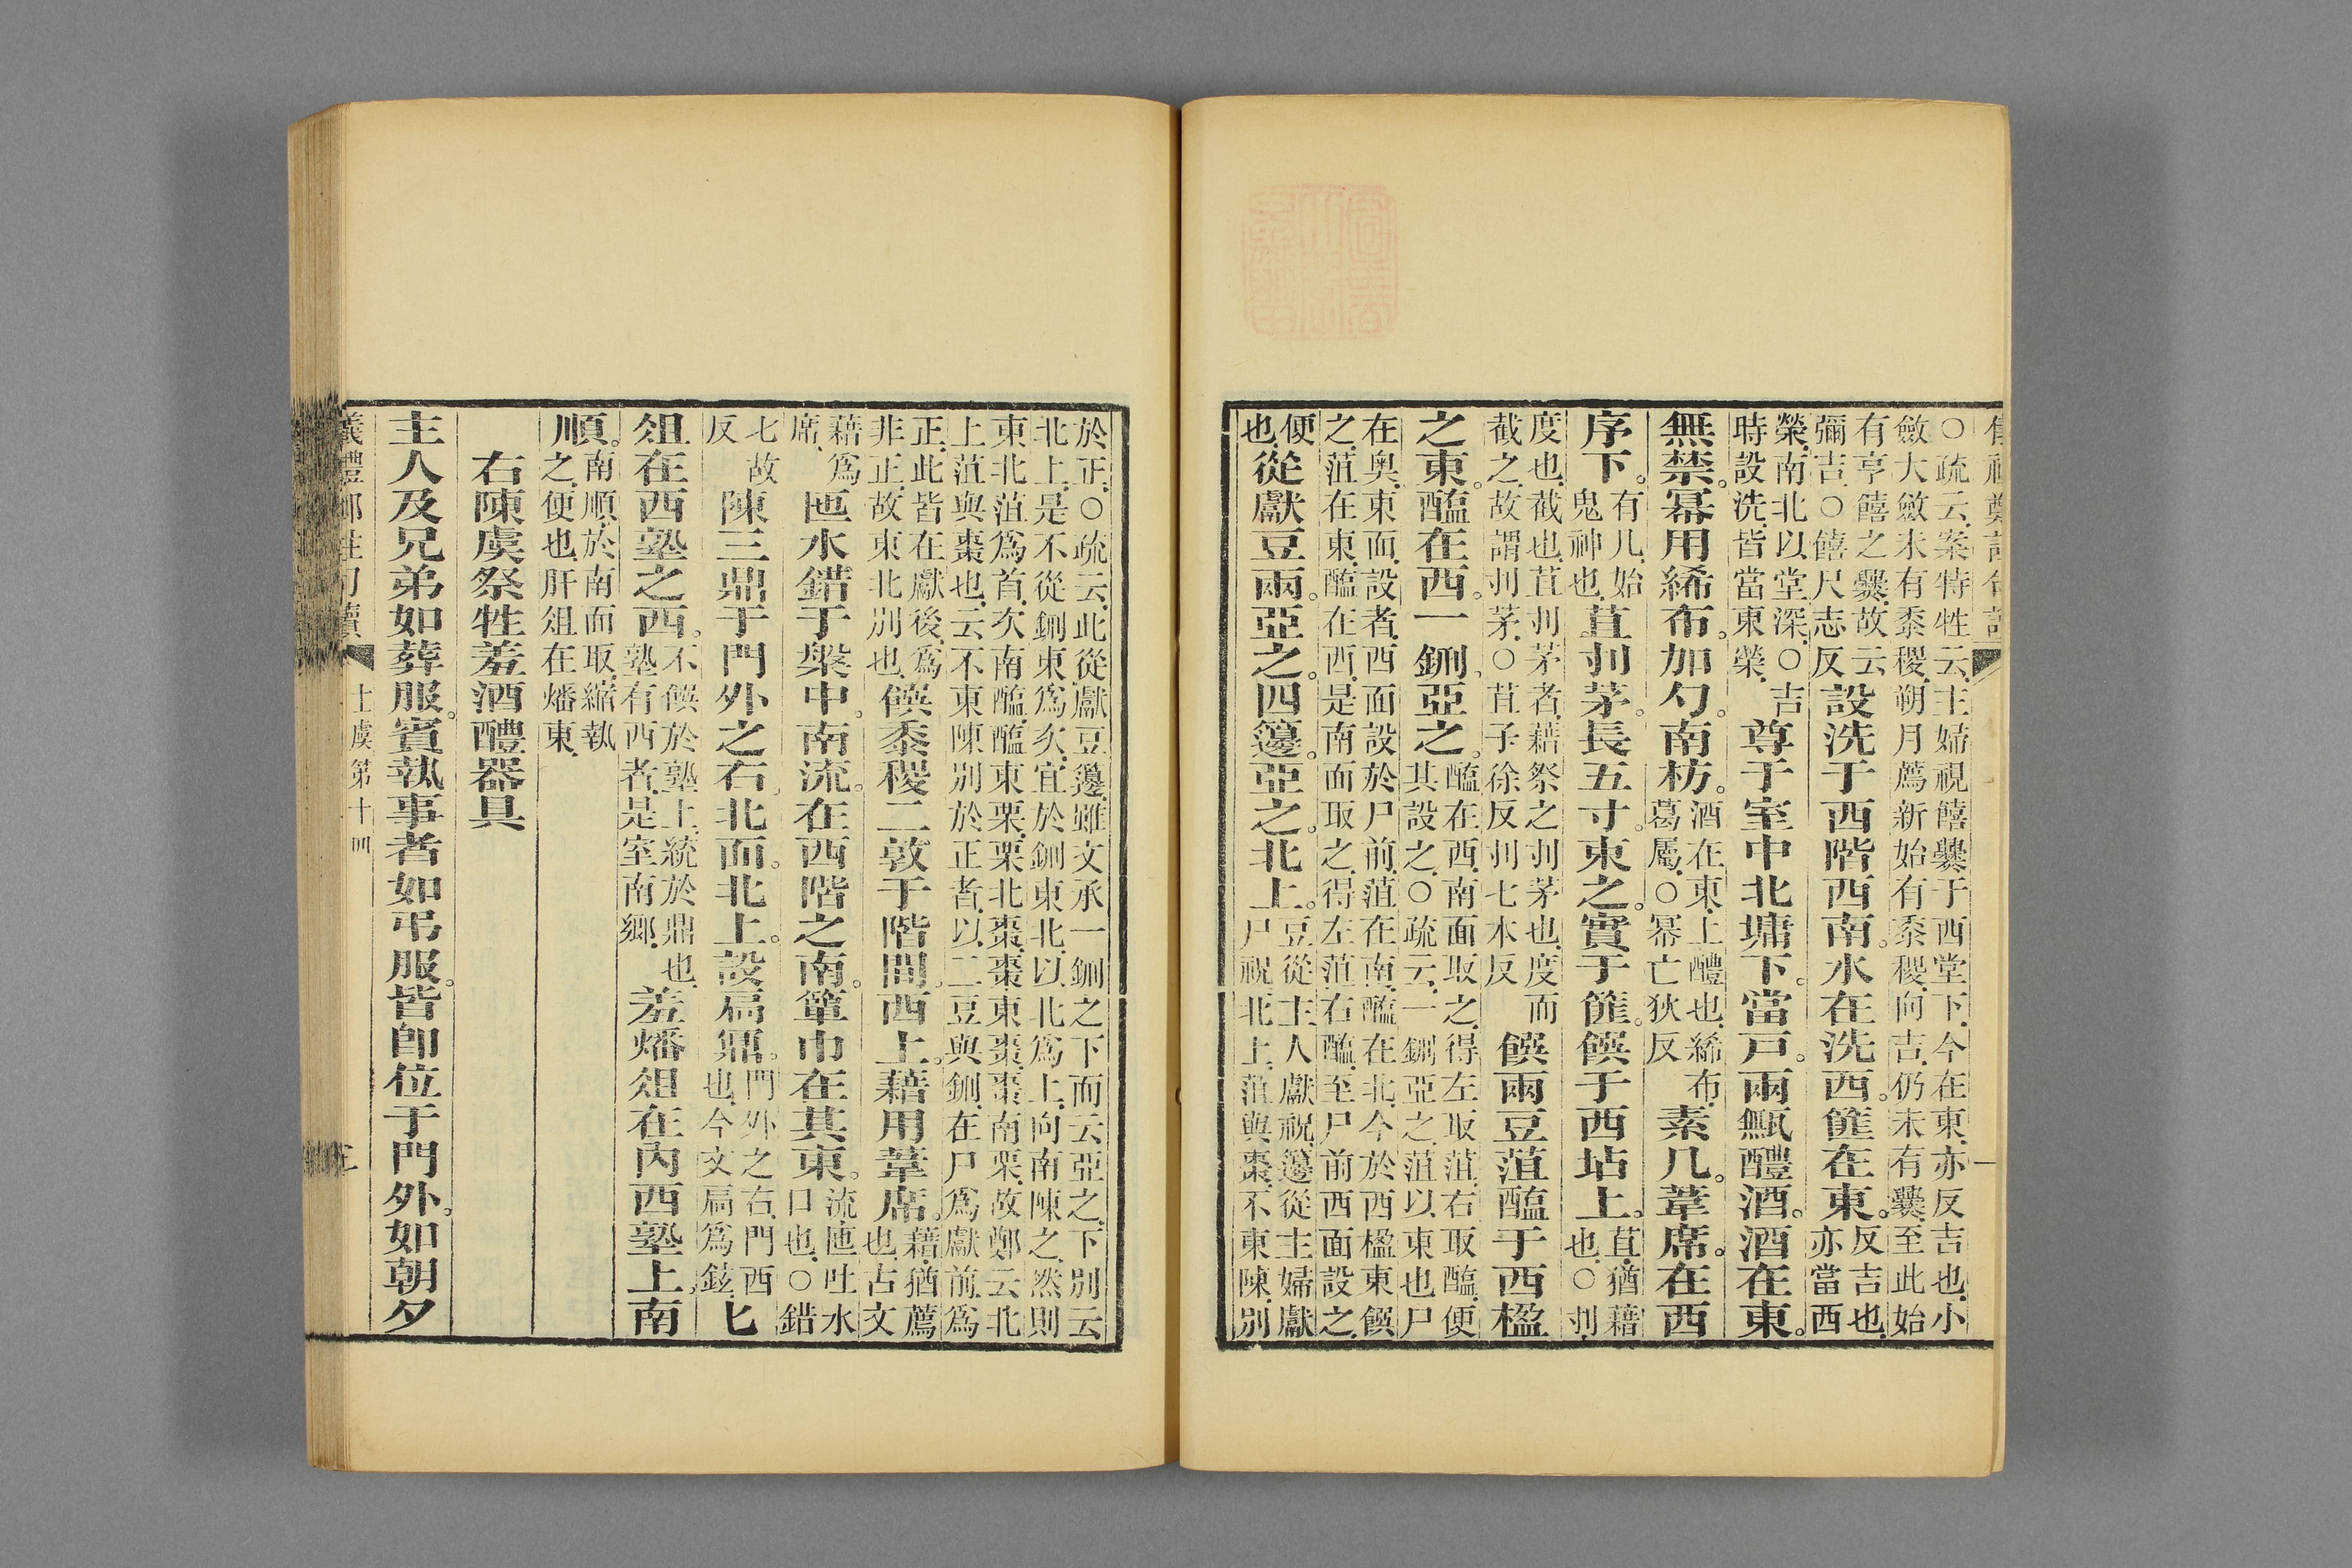 ○疏云.案特牲云.主婦視饎爨于西堂下.今在東.亦反吉也.小
斂大斂未有黍稷.朔月薦新始有黍稷.向吉.仍未有爨.至此始
有亨饎之爨.故云彌吉.○饎尺志反設洗于西階西南。水在洗西。篚在東。反吉也.亦當西
榮.南北以堂深.○吉時設洗.皆當東榮.尊于室中北墉下。當戶。兩甒醴酒。酒在東。
無禁。幂用絺布。加勺。南枋。酒在東.上醴也.絺布.葛屬.○幂亡狄反素几。葦席。在西
序下。有几.始鬼神也.苴刌茅。長五寸。束之。實于篚。饌于西坫上。苴.猶藉也.○刌.
度也.截也.苴刌茅者.藉祭之刌茅也.度而截之.故謂刌茅.○苴子徐反刌七本反饌兩豆菹醢于西楹
之東。醢在西。一鉶亞之。醢在西.南面取之.得左取菹.右取醢.便其設之.○疏云.一鉶亞之.菹以東也.尸
在奧.東面.設者西面設於尸前.菹在南.醢在北.今於西楹東饌
之.菹在東.醢在西.是南面取之.得左菹右醢.至尸前西面設之.
便也.從獻豆兩。亞之。四籩。亞之。北上。豆從主人獻祝.籩從主婦獻尸祝.北上.菹與棗.不東陳.別
於正.○疏云.此從獻豆籩.雖文承一鉶之下.而云亞之.下別云
北上.是不從鉶東爲次.宜於鉶東北.以北爲上.向南陳之.然則
東北菹爲首.次南醢.醢東栗.栗北棗.棗東棗.棗南栗.故鄭云北
上菹與棗也.云不東陳別於正者.以二豆與鉶.在尸爲獻前.爲
正.此皆在獻後.爲非正.故東北別也.饌黍稷二敦于階間。西上。藉用葦席。藉.猶薦也.古文
藉爲席.匜水錯于槃中。南流。在西階之南。簞巾在其東。流.匜吐水口也.○錯
七故反陳三鼎于門外之右。北面。北上。設扃鼏。門外之右.門西也.今文扃爲鉉.匕
俎在西塾之西。不饌於塾上.統於鼎也.塾有西者.是室南鄉.羞燔俎在內西塾上。南
順。南順.於南面取.縮執之.便也.肝俎在燔東.
右陳虞祭牲羞酒醴器具
主人及兄弟如葬服。賓執事者如弔服。皆卽位于門外。如朝夕
士虞第十四